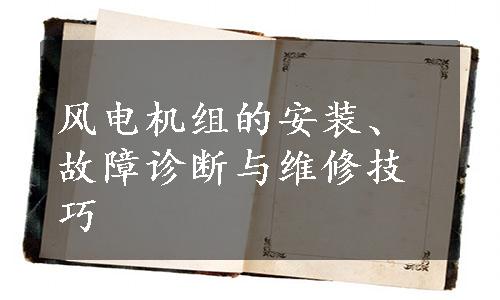 风电机组的安装、
故障诊断与维修技
巧